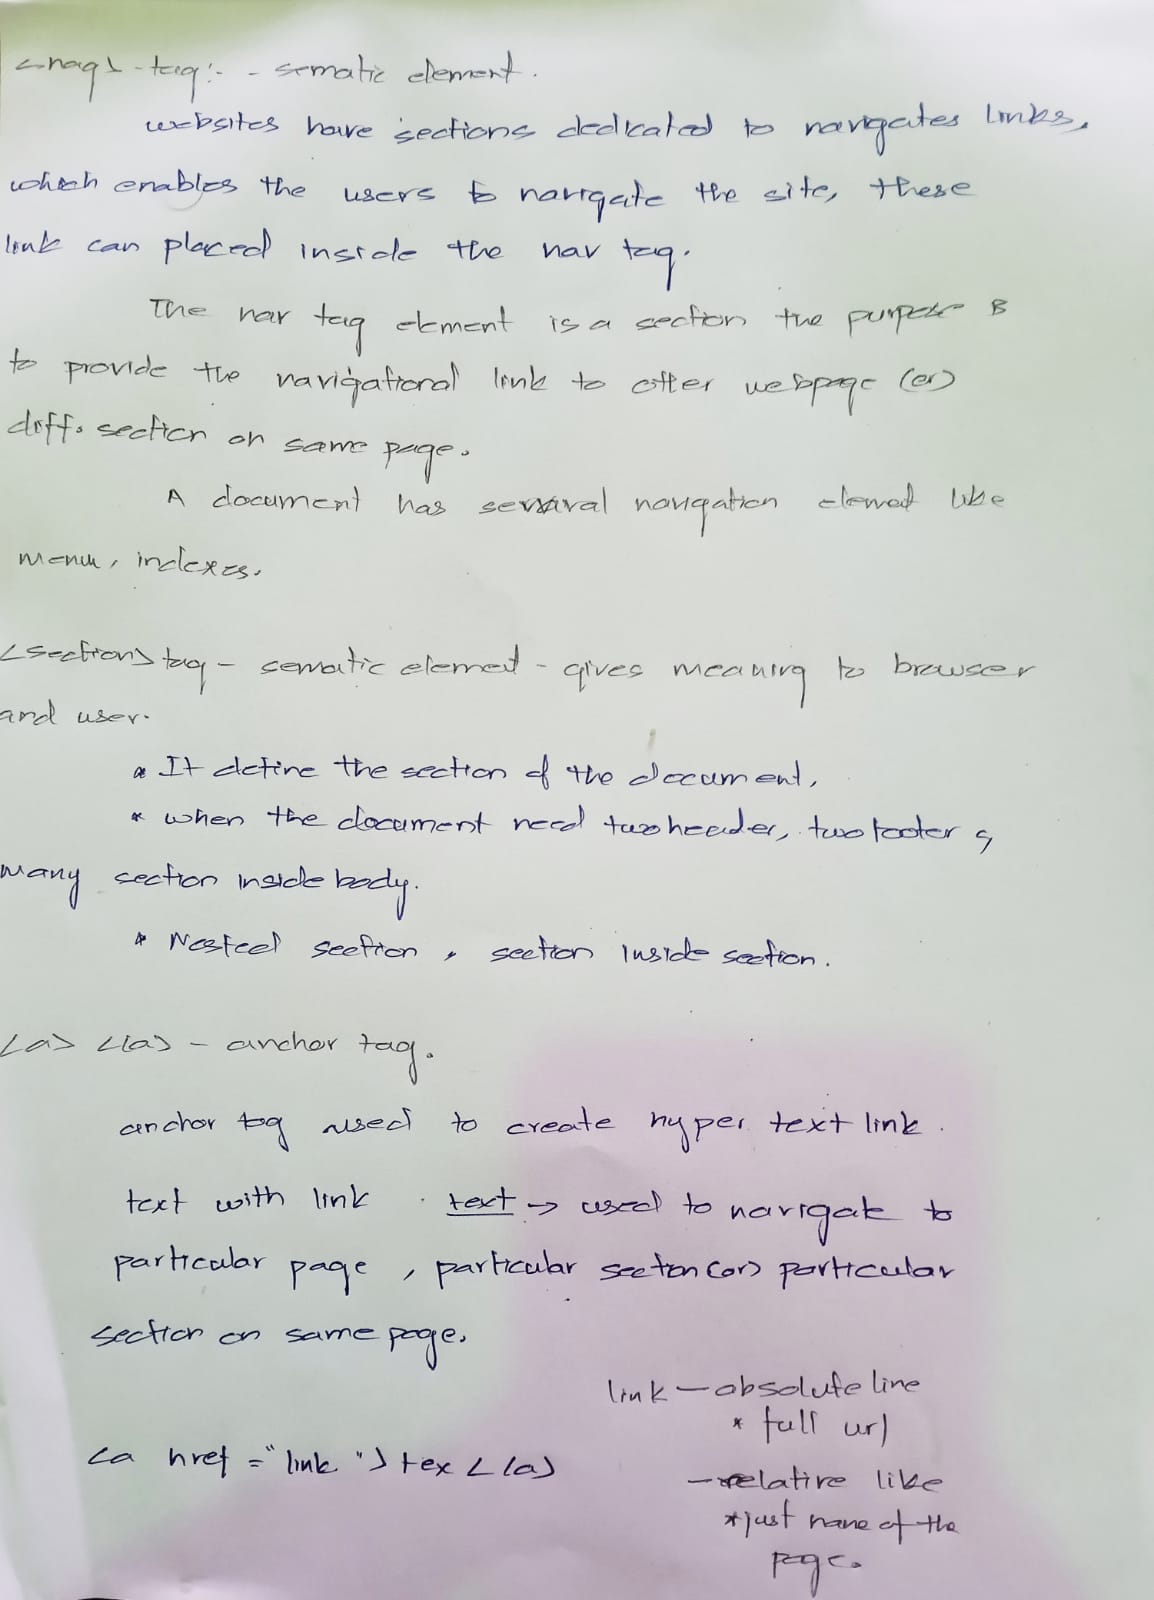 <nag> - tag :- - sematic element.
websites have sections dedicated to navigates links,
which enables the users to navigate the site, these
link can placed inside the nav tag.
The nav tag element is a section the purpose is
to provide the navigational link to other webpage (or)
diff. section on same page.
A document has several navigation element like
menu, indexes.
<section> tag - sematic element - gives meaning to browser
and user.
* It define the section of the document,
* when the document need two header, two footer &
many section inside body.
* Nested section, section inside section.
<a> </a> - anchor tag.
anchor tag used to create hyper text link.
text with link . text → used to navigate to
particular page, particular section (or) particular
section on same page.
link - absolute line
* full url
<a href = "link"> tex </a>
- relative like
* just name of the
page.